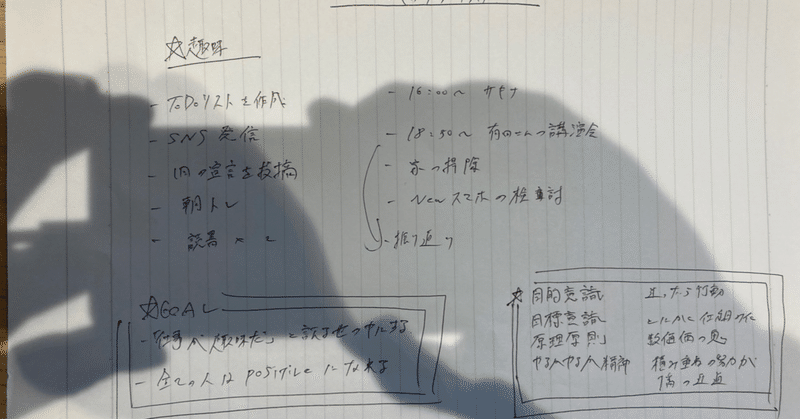 ☆趣味
- ToDoリストを作成
- SNS発信
- 1日の宣言を投稿
- 朝トレ
- 読書 × 2
- 16:00〜 サウナ
- 18:50〜 有田さんの講演会
- 家の掃除
- Newスマホの検討
- 振り返り
☆GOAL
- 「仕事が趣味だ」と談る世の中にする
- 全ての人はpositiveになれる
☆目的意識 迷ったら行動
目標意識 とにかく仕組み化
原理原則 等価価の則
やるんやるん精神 積み重ねの努力が